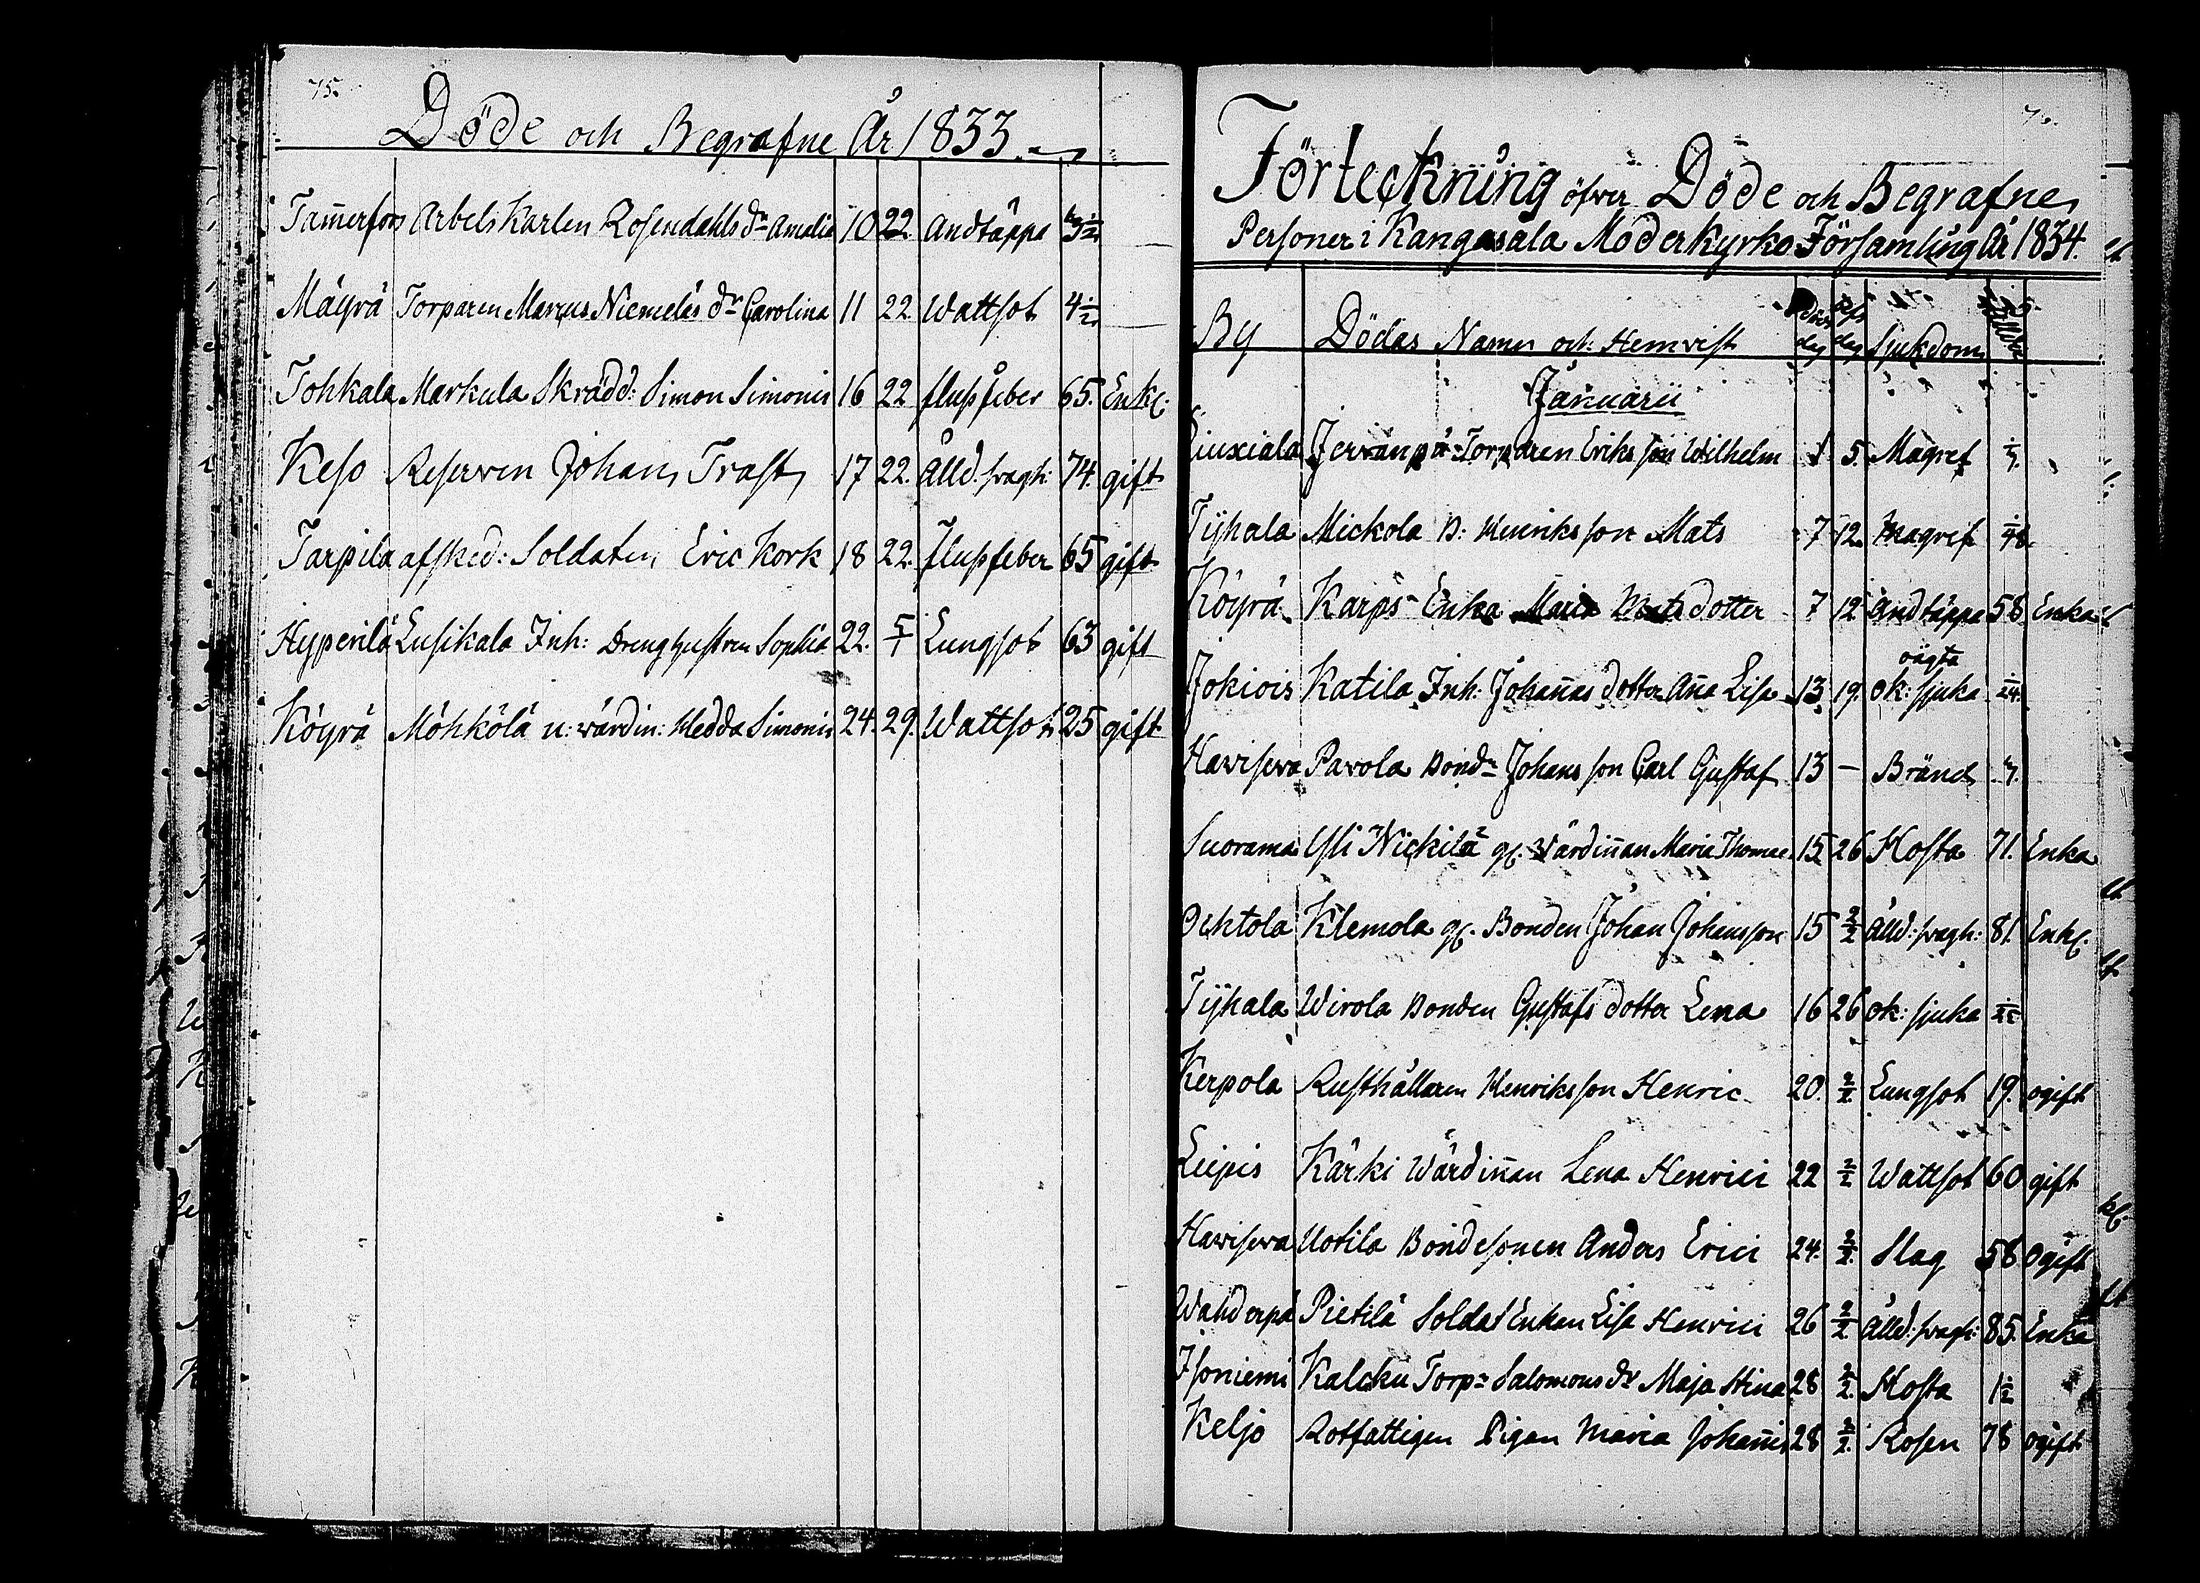 75.
Döde och Begrafne År 1833.
Tam̄erfors Arbets Karlen Rosendahls dr Amalia 10 22 Andtäppa
Mäyrä Torparen Marcus Niemeläs dr Carolina 11 22 Wattsot 4½
Tohkala Markula Skrädd: Simon Simonis 16 22 flussfeber 65. Enkl.
Keso Reserven Johan Trast 17 22. Ålld. svagh: 74. gift
Tarpila afsked: Soldaten Eric Kork 18 22. flussfeber 65 gift
Hyperilä Lusikala Inh: Dreng hustrun Sophia 22. 5/1 Lungsot 63 gift
Köyrä Möhkölä n: värdin: Hedda Simonis 24. 29. Wattsot 25 gift
76.
Förteckning öfver Döde och Begrafne
Personer i Kangasala Moderkyrko Församling År 1834.
By Dödas Namn och Hemvist Död dag dag Sjukdom
Januarii
Liuxiala Jervänpä Torparen Eriks son Wilhelm 1 5. Magref
Tÿhala Mickola B: Henriks son Mats 7 12. Magref
Köyrä Karps Enka Maria Mats dotter 7 12 Andtäppa 58 Enka
Jokiois Katila Inh: Johan̄as dotter An̄a Lisa 13 19. oägta ok: sjuka
Haviseva Pavola Bond: Johans son Carl Gustaf 13 — Bränd
Suorama Yli Nickilä gl. Värdin̄an Maria Thomae 15 26 Hosta 71. Enka
Ochtola Klemola gl. Bonden Johan Johansson 15 2/2 Ålld: svagh: 81. Enkl.
Tÿhala Wirola Bonden Gustafs dotter Lena 16 26 ok: sjuka
Kerpola Rusthållaren Henriks son Henric 20. 2/2. Lungsot 19. ogift
Leipis Kärki Wärdin̄an Lena Henrici 22 2/2 Wattsot 60 gift
Haviseva Uotila Bondesonen Anders Erici 24. 2/2. Slag 58 Ogift
Wahderpä Pietilä Soldat Enkan Lisa Henrici 26 2/2 Ålld: svagh: 85. Enka
Isoniemi Kalcku Torp: Salomons dr Maja Stina 28 2/2. Hosta 1½
Keljo Rotfattigen Pigan Maria Johan̄is 28 2/2. Rosen 78 ogift